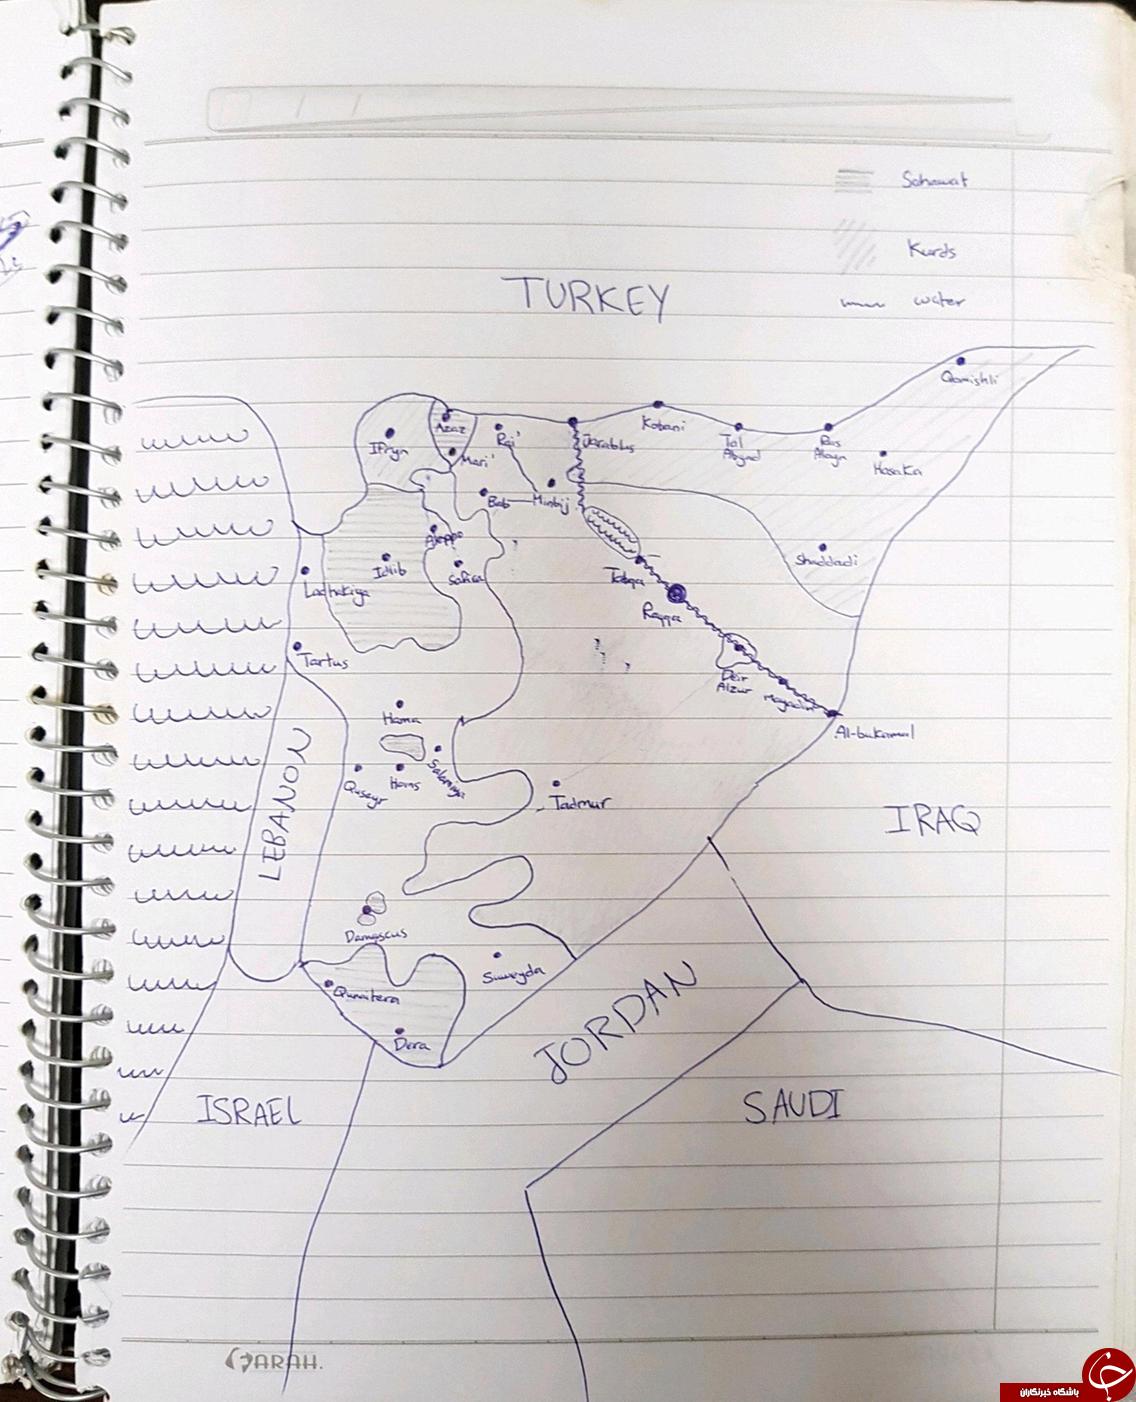 Sahawat
Kurds
water
TURKEY
Qamishli
Kobani
Azaz
Rai'
Jarablus
Tal
Abyad
Ras
Alayn
Ifryn
Mari'
Hasaka
Bab
Minbij
Aleppo
Shaddadi
Idlib
Safira
Tabqa
Ladhakiya
Raqqa
Tartus
Deir
Alzur
Mayadin
Hama
Al-bukamal
Salamiya
Homs
Qusayr
Tadmur
LEBANON
IRAQ
Damascus
Suweyda
Qunaitera
Dara
JORDAN
ISRAEL
SAUDI
FARAH.
باشگاه خبرنگاران